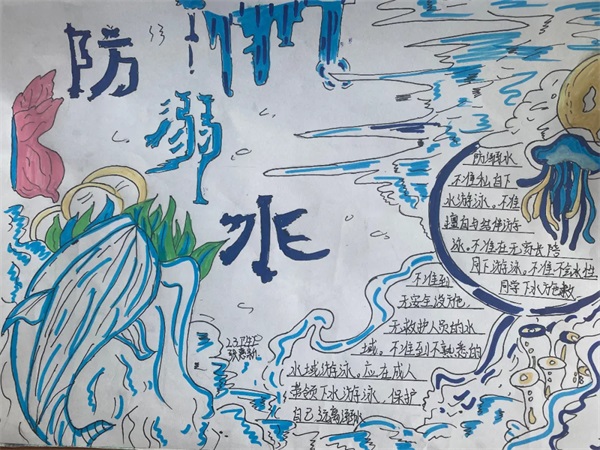 防溺水
防溺水
不准私自下
水游泳。不准
擅自与结伴游
泳。不准在无家长陪
同下游泳。不准不会水性
同学下水施救
不准到
无安全设施
无救护人员的水
域。不准到不熟悉的
水域游泳。应在成人
带领下水游泳，保护
自己远离溺水